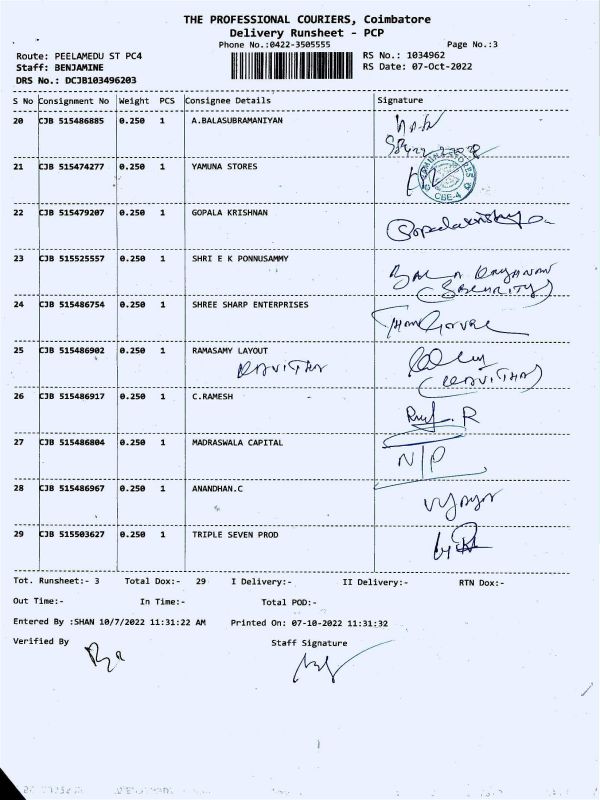 THE PROFESSIONAL COURIERS, Coimbatore
Delivery Runsheet - PCP
Phone No.:0422-3505555 Page No.:3
Route: PEELAMEDU ST PC4 RS No.: 1034962
Staff: BENJAMINE RS Date: 07-Oct-2022
DRS No.: DCJB103496203
S No Consignment No Weight PCS Consignee Details Signature
20 CJB 515486885 0.250 1 A.BALASUBRAMANIYAN
21 CJB 515474277 0.250 1 YAMUNA STORES
YAMUNA STORES CBE-4
22 CJB 515479207 0.250 1 GOPALA KRISHNAN
23 CJB 515525557 0.250 1 SHRI E K PONNUSAMMY
(SECURITY)
24 CJB 515486754 0.250 1 SHREE SHARP ENTERPRISES
25 CJB 515486902 0.250 1 RAMASAMY LAYOUT
KAVITHA (KAVITHA)
26 CJB 515486917 0.250 1 C.RAMESH
27 CJB 515486804 0.250 1 MADRASWALA CAPITAL
N/P
28 CJB 515486967 0.250 1 ANANDHAN.C
29 CJB 515503627 0.250 1 TRIPLE SEVEN PROD
Tot. Runsheet:- 3 Total Dox:- 29 I Delivery:- II Delivery:- RTN Dox:-
Out Time:- In Time:- Total POD:-
Entered By :SHAN 10/7/2022 11:31:22 AM Printed On: 07-10-2022 11:31:32
Verified By Staff Signature